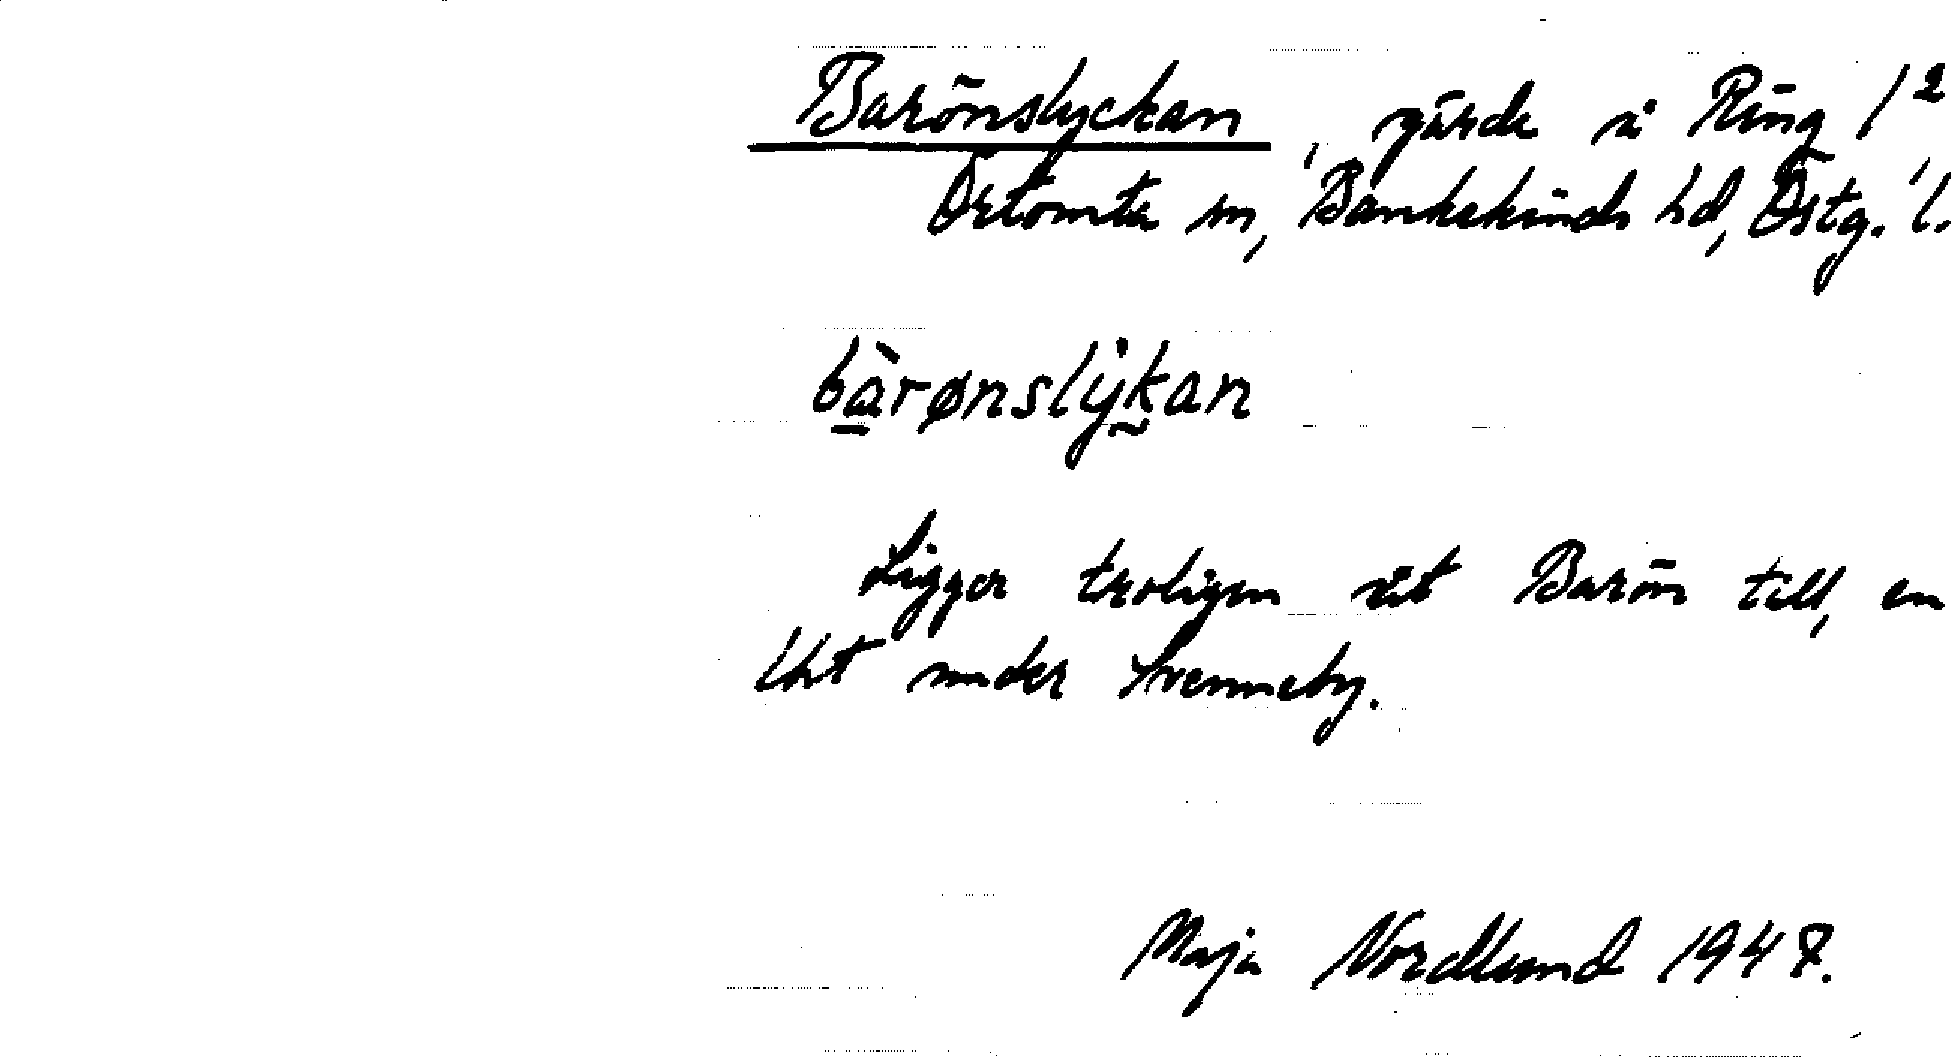 Barönslyckan, gärde i Ring 1²
Örtomta sn, Bankekinds hd, Östg. l.
bàrønslẏkan
Ligger troligen åt Barön till, en
tht under Svenneby.
Maja Nordlund 1947.